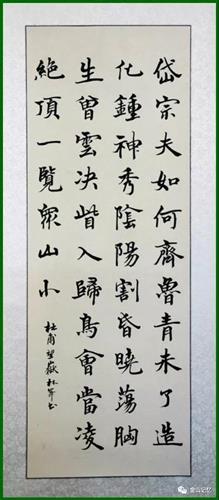 岱宗夫如何齊魯青未了造
化鍾神秀陰陽割昏曉蕩胸
生曾雲決眥入歸鳥會當凌
絕頂一覽眾山小
杜甫望嶽